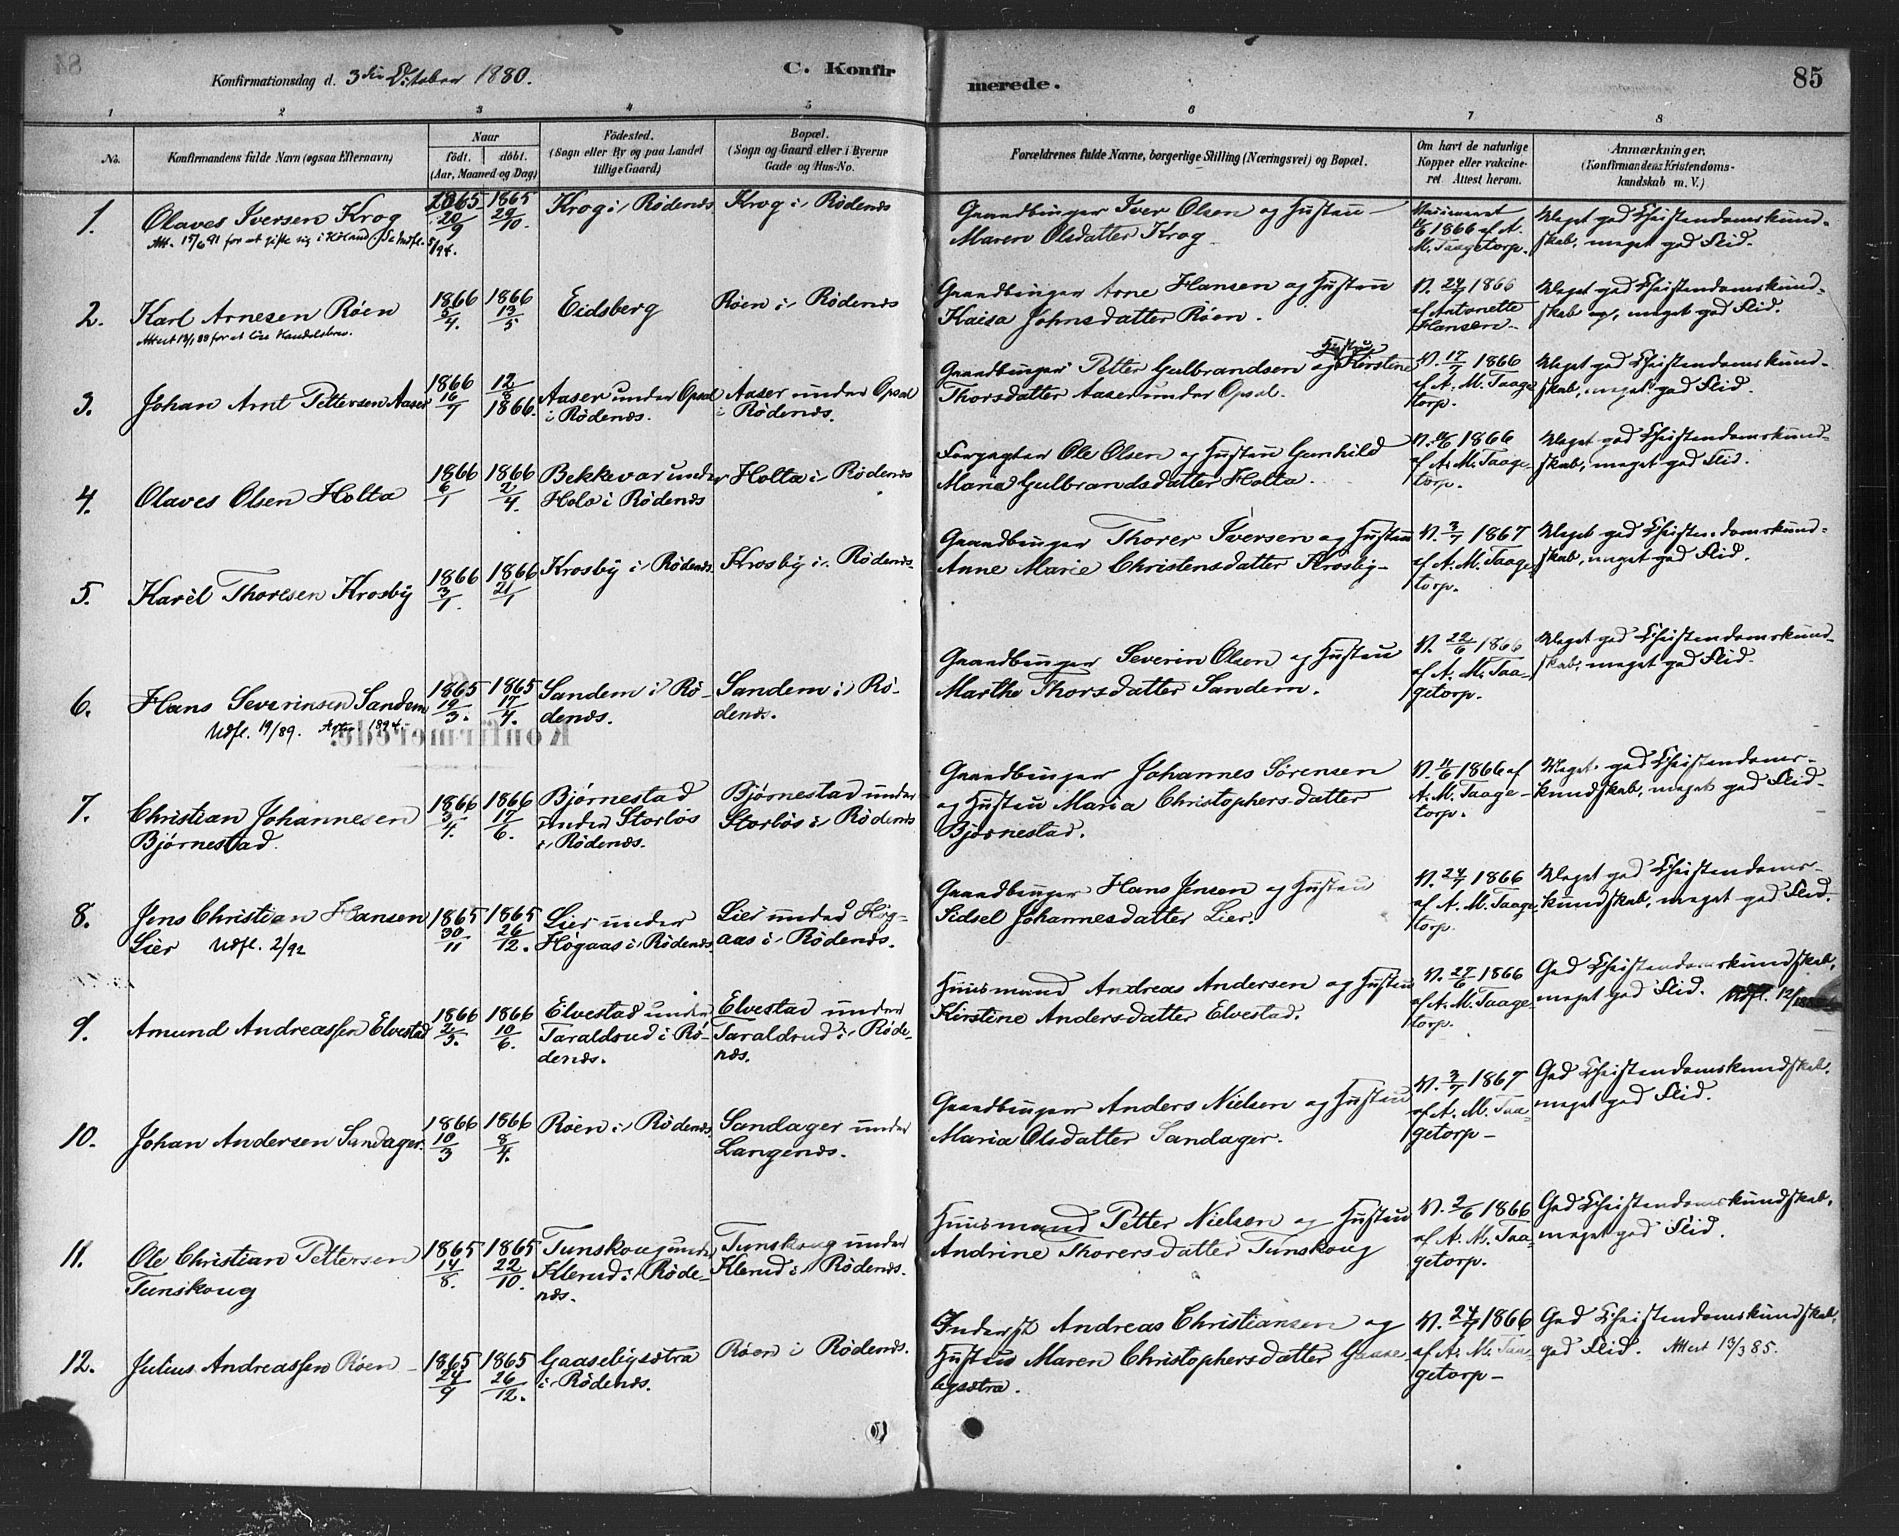 Konfirmationsdag d. 3die October 1880.
C. Konfirmerede.
85
1 2 3 4 5 6 7 8
No.
Konfirmandens fulde Navn (ogsaa Efternavn)
Naar
født. døbt.
(Aar, Maaned og Dag)
Fødested.
(Sogn eller By og paa Landet
tillige Gaard)
Bopæl.
(Sogn og Gaard eller i Byerne
Gade og Hus-No.
Forældrenes fulde Navne, borgerlige Stilling (Næringsvei) og Bopæl.
Om havt de naturlige
Kopper eller vakcine-
ret. Attest herom.
Anmærkninger,
(Konfirmandens Kristendoms-
kundskab m. V.)
1.
Olaves Iversen Krog
Att. 17/6 91 for at gifte sig i Høland
1865 20/9
1865 29/10
Krog i Rødenæs
Krog i Rødenæs
Gaardbruger Iver Olsen og Hustru
Maren Olsdatter Krog
1866 af A.
M. Taagetorp.
Meget god Christendomskund-
skab, meget god Flid.
2.
Karl Arnesen Röen
1866 5/4.
1866 13/5
Eidsberg
Röen i Rødenæs
Gaardbruger Arne Hansen og Hustru
Kaisa Johnsdatter Röen.
V. 24/7 1866
af Antonette
Hansen
Meget god Christendomskund-
skab og meget god Flid.
3.
Johan Arnt Pettersen Aaser
1866 16/7
12/8 1866.
Aaser under Opsal
i Rødenæs.
Aaser under Opsal
i Rødenæs.
Gaardbruger Petter Gulbrandsen og Hustru Kirstine
Thorsdatter Aaser under Opsal.
V. 17/7 1866
af A. M. Taage
torp.
Meget god Christendomskund-
skab, meget god Flid.
4.
Olaves Olsen Holta
1866 6/1
1866 2/4.
Bekkevar under
Holo i Rødenæs
Holta i Rødenæs
Forpagter Ole Olsen og Hustru Gunhild
Maria Gulbrandsdatter Holta.
1866
af A. M. Taage-
torp.
Meget god Christendomskund-
skab, meget god Flid.
5.
Karèl Thoresen Krosby
1866 3/1.
1866 21/1
Krosby i Rødenæs.
Krosby i Rødenæs.
Gaardbruger Thorer Iversen og Hustru
Anne Marie Christensdatter Krosby-
V. 3/7 1867
af A. M. Taage
torp.
Meget god Christendomskund-
skab, meget god Flid.
6.
Hans Severinsen Sandem
Udfl. 19/89. 1894.
1865 19/3.
1865 17/4.
Sandem i Rø-
denæs.
Sandem i Rø-
denæs.
Gaardbruger Severin Olsen og Hustru
Marthe Thorsdatter Sandem.
V. 22/6 1866
af A. M. Taa-
getorp.
Meget god Christendomskund-
skab, meget god Flid.
7.
Christian Johannesen
Björnestad.
1866 3/4.
1866 17/6.
Björnestad
under Storlös
i Rødenæs.
Björnestad under
Storlös i Rødenæs
Gaardbruger Johannes Sörensen
og Hustru Maria Christophersdatter
Björnestad.
1866 af
A. M. Taage-
torp.
Meget god Christendoms-
kundskab, meget god Flid.
8.
Jens Christian Hansen
Lier Udfl. 2/92
1865 30/11
1865 26/12.
Lier under
Högaas i Rødenæs.
Lier under Hög-
aas i Rødenæs.
Gaardbruger Hans Jensen og Hustru
Sidsel Johannesdatter Lier.
V. 24/7 1866
af A. M. Taage
torp.
Meget god Christendoms-
kundskab, meget god Flid.
9.
Amund Andreassen Elvestad
1866 2/3.
1866 10/6.
Elvestad under
Taraldrud i Rø-
denæs.
Elvestad under
Taraldrud i Røde-
næs.
Huusmand Andreas Andersen og Hustru
Kirstine Andersdatter Elvestad.
V. 27/6 1866
af A. M. Taage-
torp.
God Christendomskundskab,
meget god Flid.
10.
Johan Andersen Sandager.
1866 10/3
1866 8/4.
Röen i Rødenæs.
Sandager under
Langenæs.
Gaardbruger Anders Nielsen og Hustru
Maria Olsdatter Sandager.
V. 3/7 1867
af A. M. Taa-
getorp-
God Christendomskundskab.
meget god Flid.
11.
Ole Christian Pettersen
Tunskoug
1865 14/8.
1865 22/10.
Tunskoug under
Klerud i Røde-
næs.
Tunskoug under
Klerud i Rødenæs.
Huusmand Petter Nielsen og Hustru
Andrine Thorersdatter Tunskoug
V. 2/6 1866
af A. M. Taa-
getorp.
God Christendomskundskab,
meget god Flid.
12.
Julius Andreassen Röen-
1865 24/9
1865 26/12.
Gaaseligsætra
i Rødenæs.
Röen i Rødenæs.
Inderst Andreas Christiansen og
Hustru Maren Christophersdatter Gaase-
ligsætra.
V. 24/7 1866
af A. M. Taa-
getorp-
God Christendomskundskab,
god Flid. Attest 13/3 85.